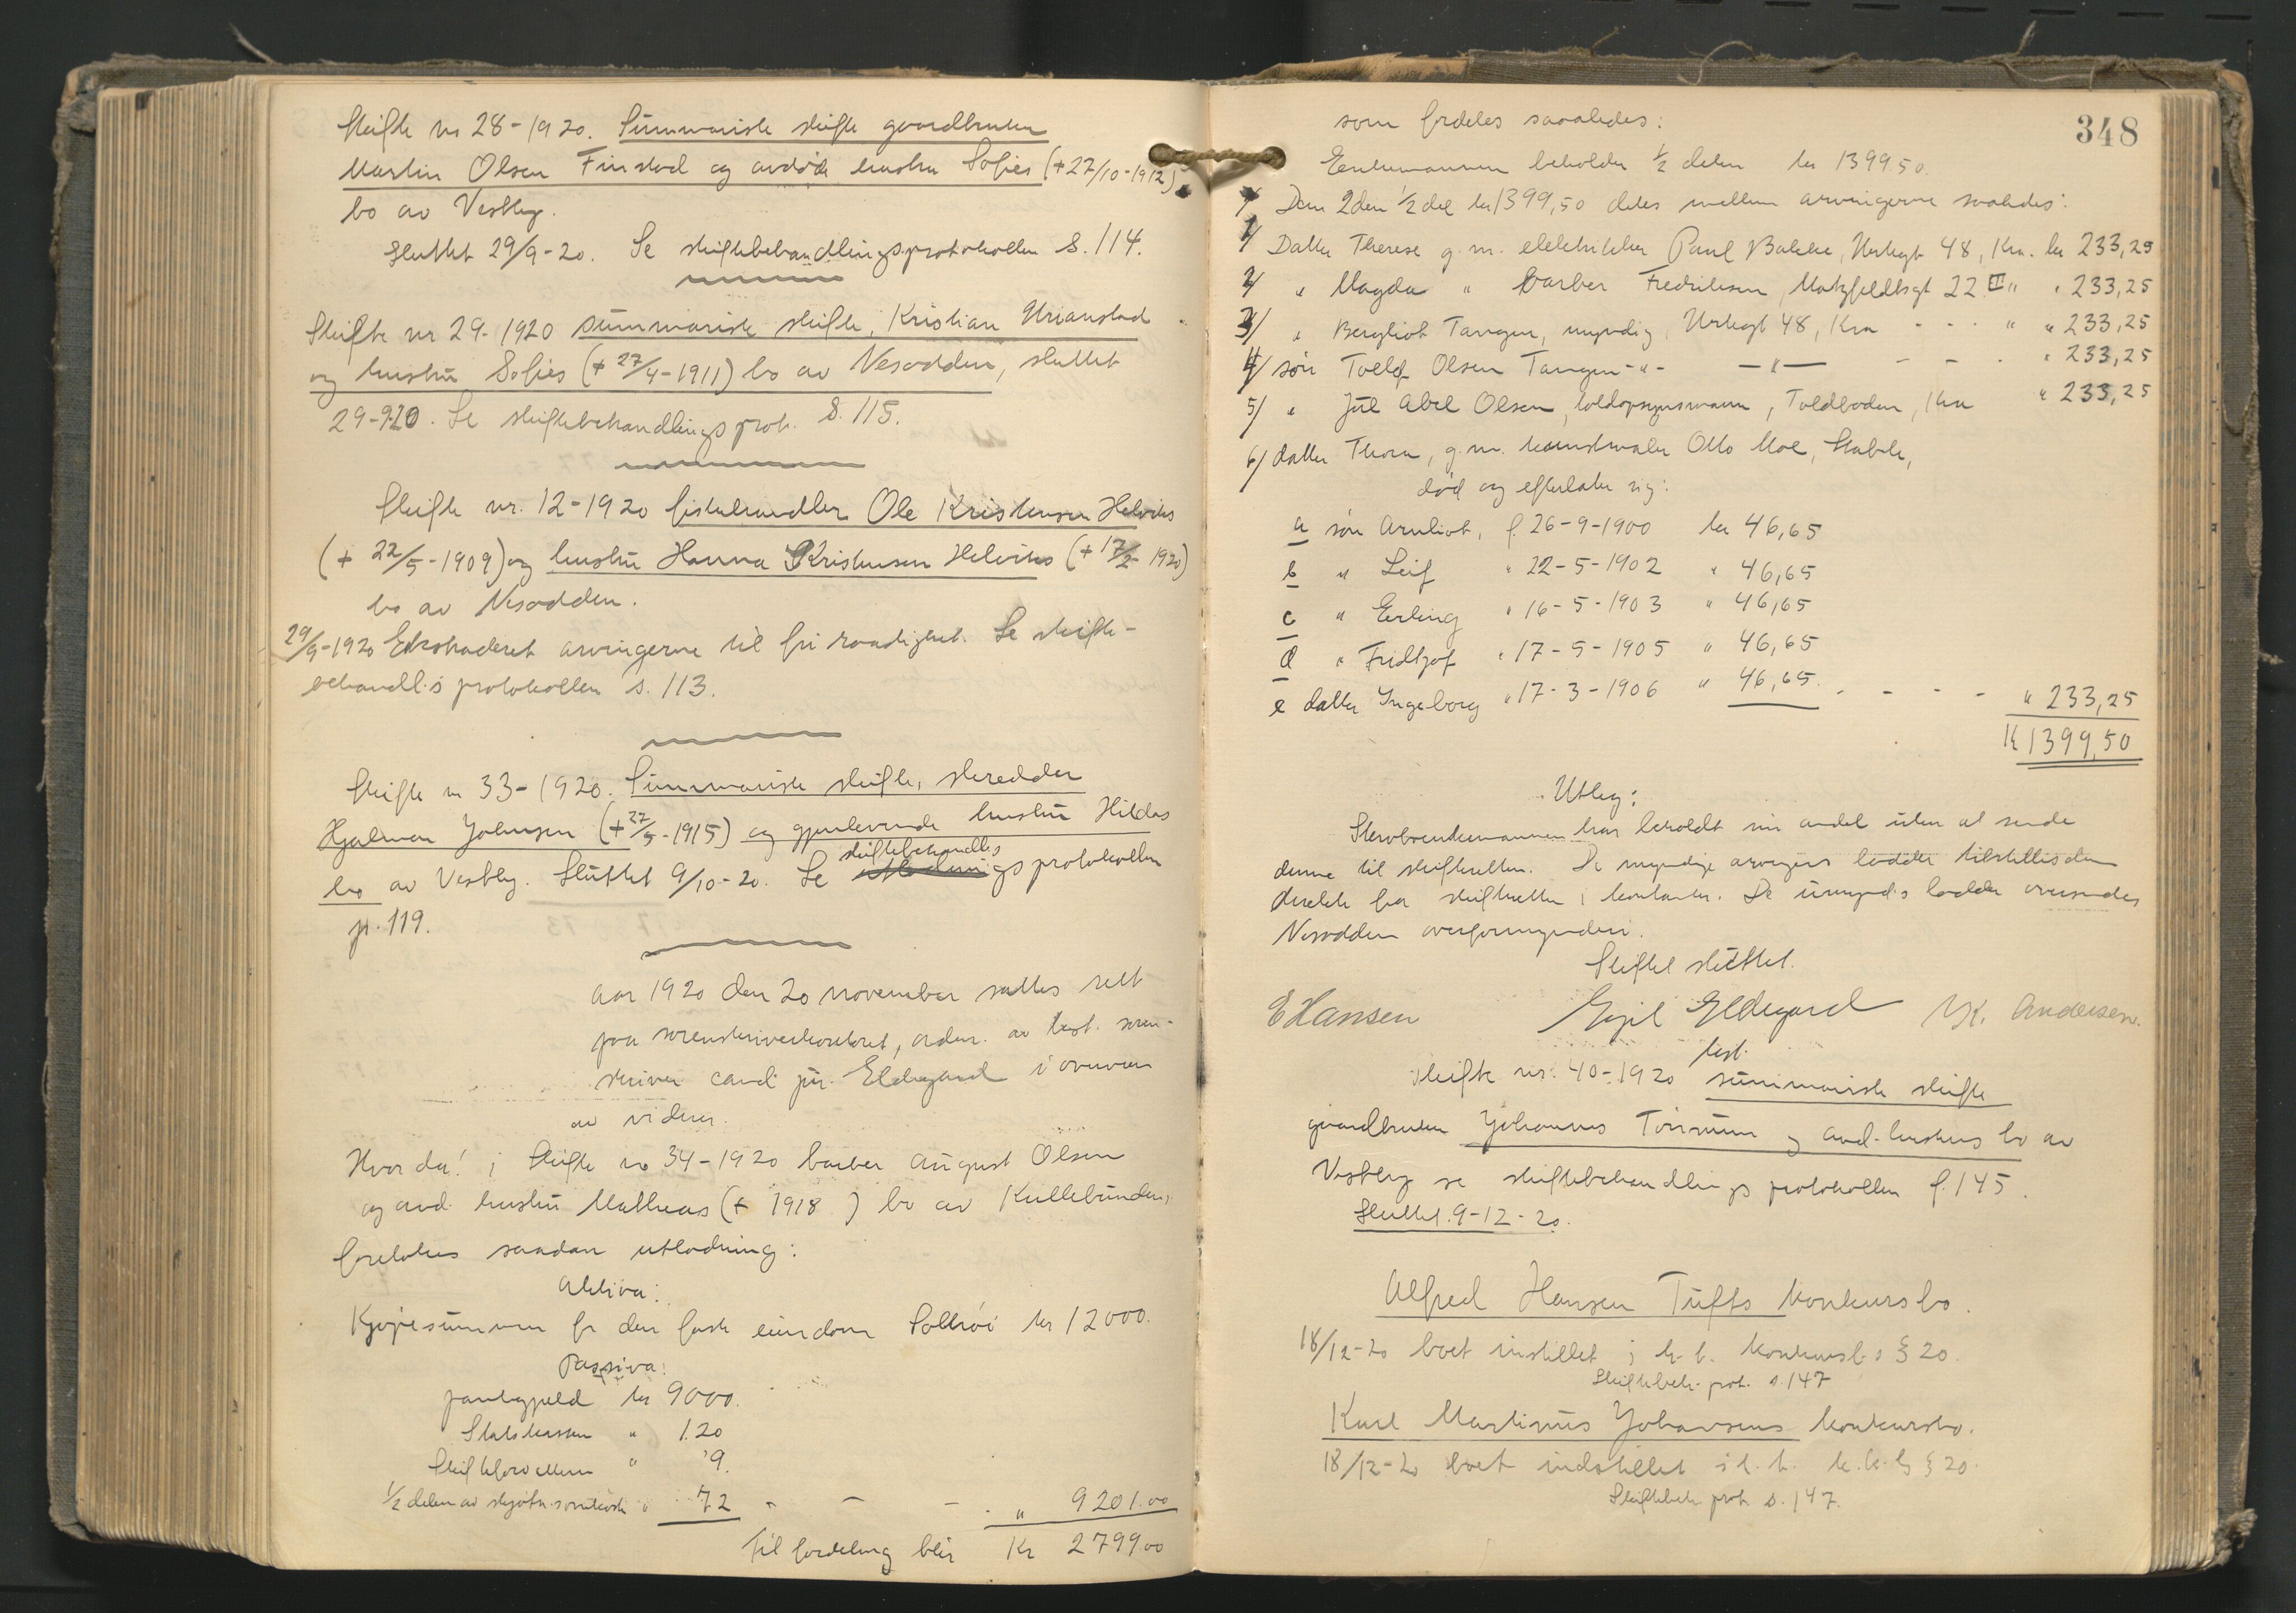 Skifte nr 28-1920. Summarisk skifte gaardbruker
Martin Olsen Finstad og avdöde hustru Sofies (+27/10-1912)
bo av Vestby.
Sluttet 29/9-20. Se skiftebehandlingsprotokollen s. 114.
Skifte nr 29-1920 summarisk skifte, Kristian Urianstad
og hustru Sofies (+ 27/4-1911) bo av Nesodden, sluttet
29-9-20. Se skiftebehandlings prot. s. 115.
Skifte nr. 12-1920 fiskehandler Ole Kristensen Helviks
(+ 22/5-1909) og hustru Hanna Kristensen Helviks (+ 17/2 1920)
bo av Nesodden.
29/9-1920 Ekstraderet arvingerne til fri raadighet. Se skifte-
behandl.s protokollen s. 113.
Skifte nr 33-1920. Summarisk skifte, skredder
Hjalmar Johnsen (+27/5-1915) og gjenlevende hustru Hildas
bo av Vestby. Sluttet 9/10-20. Se skiftebehandlingsprotokollen
p. 119.
Aar 1920 den 20 november sattes rett
paa sorenskriverkontoret, adm. av kst. soren-
skriver cand. jur. Eldegard i overvær
av vidner.
Hvorda! i Skifte no 34-1920 barber August Olsen
og avd. hustru Matheas (+ 1918 ) bo av Kullebunden,
foretokes saadan utlodning:
Aktiva:
Kjöpesummen for den faste eiendom Solbröi kr 12000.
Passiva:
pantegjeld kr 9000.
Statskassen " 120
Skifteforvalteren " 9.
1/2 delen av skjöte omkost. " 72 - - - " 9201.00
Til fordeling blir Kr 2799.00
348
som fordeles saaledes:
Enkemannen beholder 1/2 delen kr 1399.50.
Den 2den 1/2 del kr 1399,50 deles mellem arvingerne saaledes:
1/ Datter Therese g. m. elektriker Paul Bakke, Urtegt 48, Kra. kr 233,25
2/ " Magda " barber Fredriksen, Motzfeldtsgt 22 III " " 233,25
3/ " Bergliot Tangen, myndig, Urtegt 48, Kra - - - " " 233,25
4/ sön Tollef Olsen Tangen -"- -"- - - - " 233,25
5/ " Jul Abel Olsen, toldopsynsmann, Toldboden, Kra " 233,25
6/ datter Thora, g. m. kunstmaler Otto Moe, Stabek,
död og efterlater sig:
a sön Arnliot, f. 26-9-1900 kr 46,65
b " Leif " 22-5-1902 " 46,65
c " Erling " 16-5-1903 " 46,65
d " Fridtjof " 17-5-1905 " 46,65
e datter Ingeborg " 17-3-1906 " 46,65. - - - - " 233,25
K 1399,50
Utlæg:
Skrabenkemannen har beholdt sin andel uten at sende
denne til skifteretten. De myndige arvingers lodder tilstilles dem
direkte fra skifteretten i kontanter. De umynd.s lodder oversendes
Nesodden overformynderi.
Skiftet sluttet.
E Hansen Egil Eldegard K. Andersen.
kst.
Skifte nr. 40-1920 summarisk skifte
gaardbruker Johannes Torrum og avd. hustrus bo av
Vestby se skiftebehandlings protokollen f. 145.
Sluttet 9-12-20.
Alfred Hansen Tufts konkursbo.
18/12-20 boet instillet i h. t. konkursl.s § 20.
Skiftebeh. prot. s. 147
Karl Martinus Johansens konkursbo.
18/12-20 boet indstillet i h. t. k. k. l. § 20.
Skiftebeh. prot. s. 147.